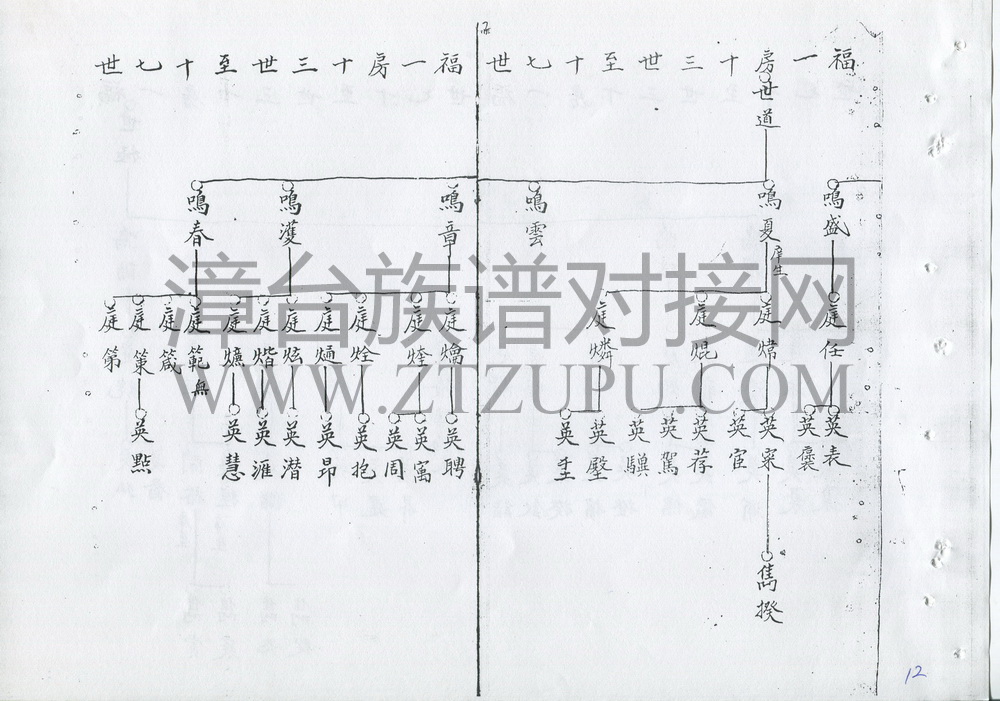 12
福一房十三世至十七世
福一房十三世至十七世
世道
鳴盛
鳴夏
庠生
鳴雲
鳴音
鳴濩
鳴春
庭任
庭煒
庭焜
庭燐
庭爚
庭煃
庭烇
庭煸
庭炫
庭熸
庭爊
庭範
無
庭箴
庭策
庭第
英表
英褒
英寀
英宦
英荐
英駕
英驥
英壂
英圭
英聘
英寓
英周
英抱
英昂
英潛
英滙
英慧
英點
雋揆
漳台族谱对接网
WWW.ZTZUPU.COM
12